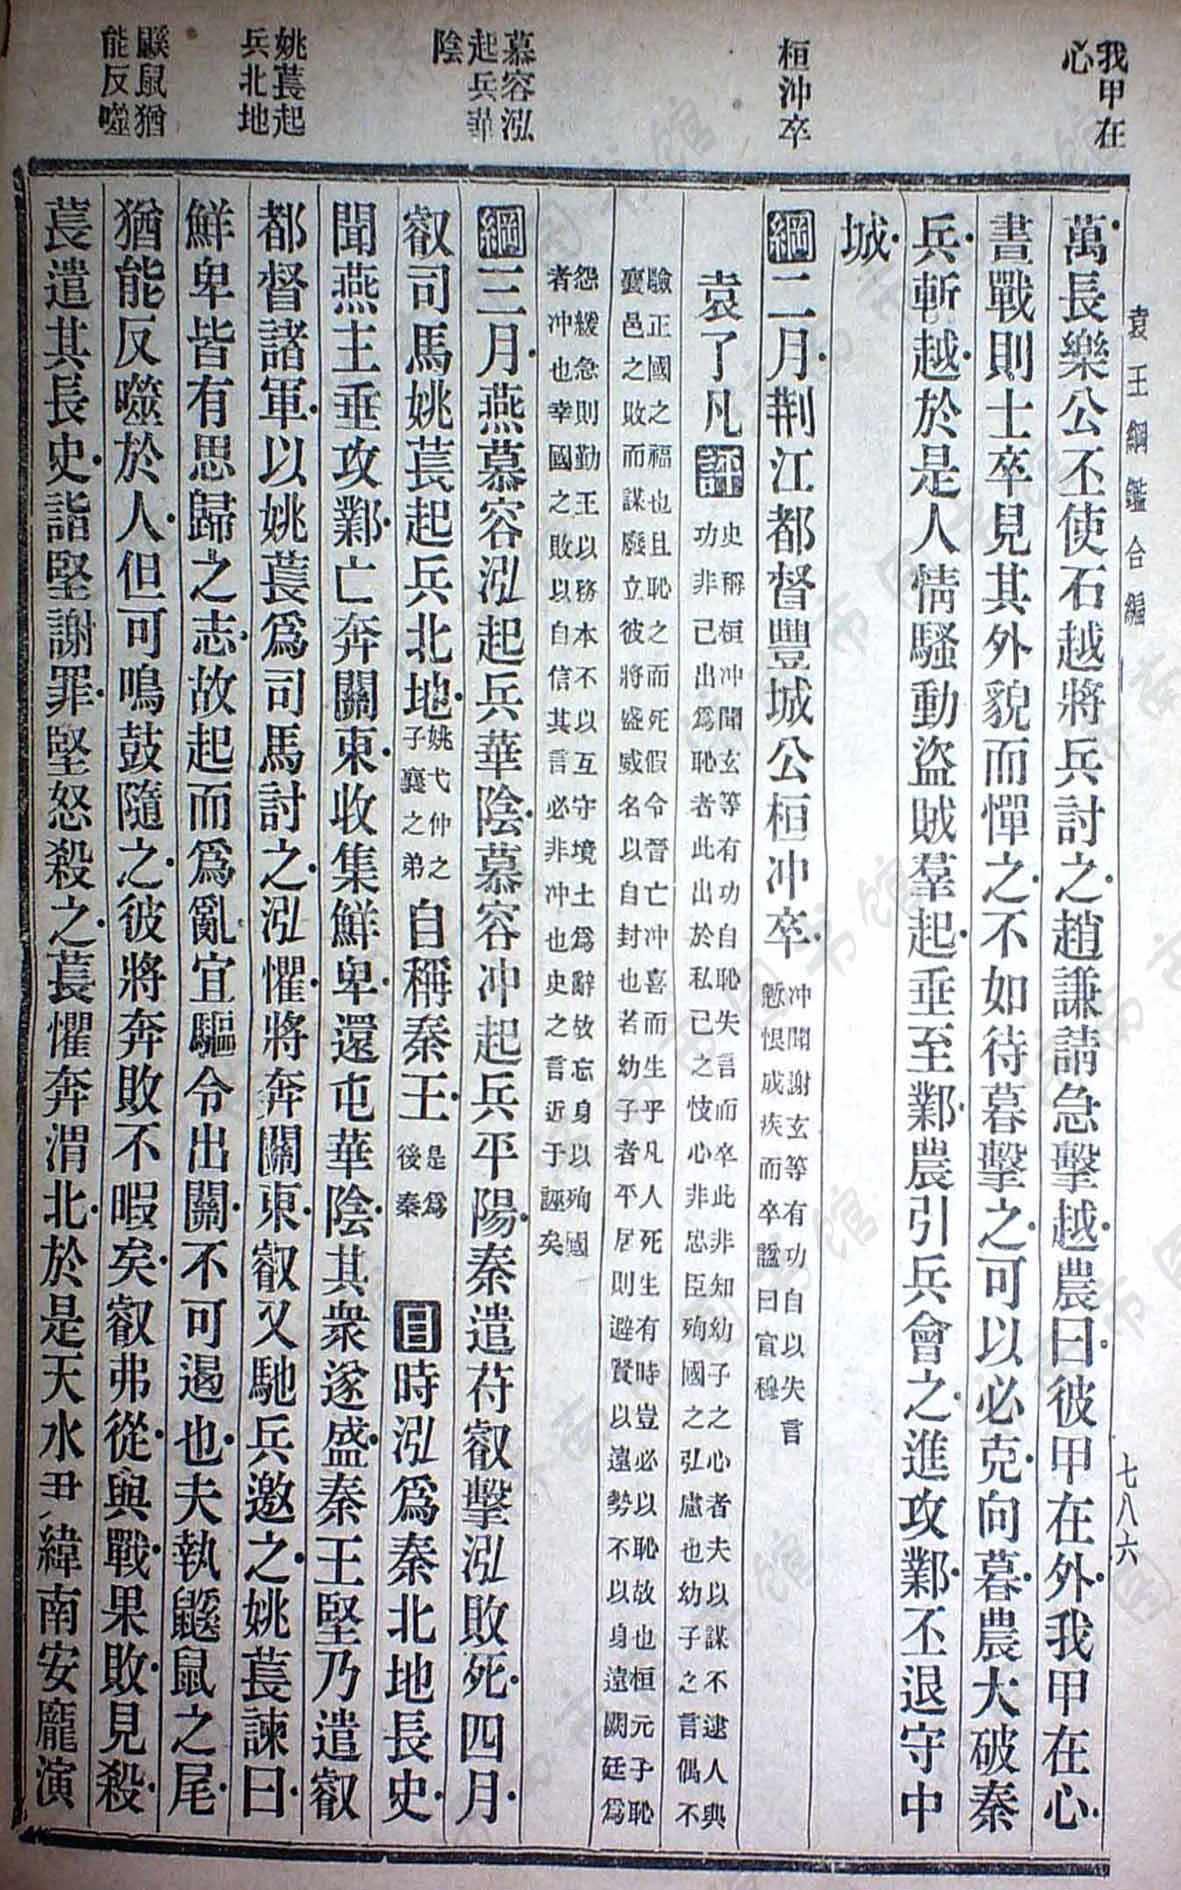 袁王綱鑑合編
七八六
我甲在
心
桓沖卒
慕容泓
起兵華
陰
姚萇起
兵北地
鼷鼠猶
能反噬
萬長樂公丕使石越將兵討之趙謙請急擊越農曰彼甲在外我甲在心
晝戰則士卒見其外貌而憚之不如待暮擊之可以必克向暮農大破秦
兵斬越於是人情騷動盜賊羣起垂至鄴農引兵會之進攻鄴丕退守中
城
綱二月荆江都督豐城公桓冲卒
冲聞謝玄等有功自以失言
慙恨成疾而卒諡曰宣穆
袁了凡評
史稱桓冲聞玄等有功自恥失言而卒此非知幼子之心者夫以謀不逮人與
功非己出爲恥者此出於私己之忮心非忠臣殉國之弘慮也幼子之言偶不
驗正國之福也且恥之而死假令晉亡冲喜而生乎凡人死生有時豈必以恥故也桓元子恥
襄邑之敗而謀廢立彼將盛威名以自封也若幼子者平居則避賢以遠勢不以身遠闕廷爲
怨緩急則勤王以務本不以互守境土爲辭故忘身以殉國
者冲也幸國之敗以自信其言必非冲也史之言近于誣矣
綱三月燕慕容泓起兵華陰慕容冲起兵平陽秦遣苻叡擊泓敗死四月
叡司馬姚萇起兵北地
姚弋仲之
子襄之弟
自稱秦王
是爲
後秦
目時泓爲秦北地長史
聞燕主垂攻鄴亡奔關東收集鮮卑還屯華陰其衆遂盛秦王堅乃遣叡
都督諸軍以姚萇爲司馬討之泓懼將奔關東叡又馳兵邀之姚萇諫曰
鮮卑皆有思歸之志故起而爲亂宜驅令出關不可遏也夫執鼷鼠之尾
猶能反噬於人但可鳴鼓隨之彼將奔敗不暇矣叡弗從與戰果敗見殺
萇遣其長史詣堅謝罪堅怒殺之萇懼奔渭北於是天水尹緯南安龐演